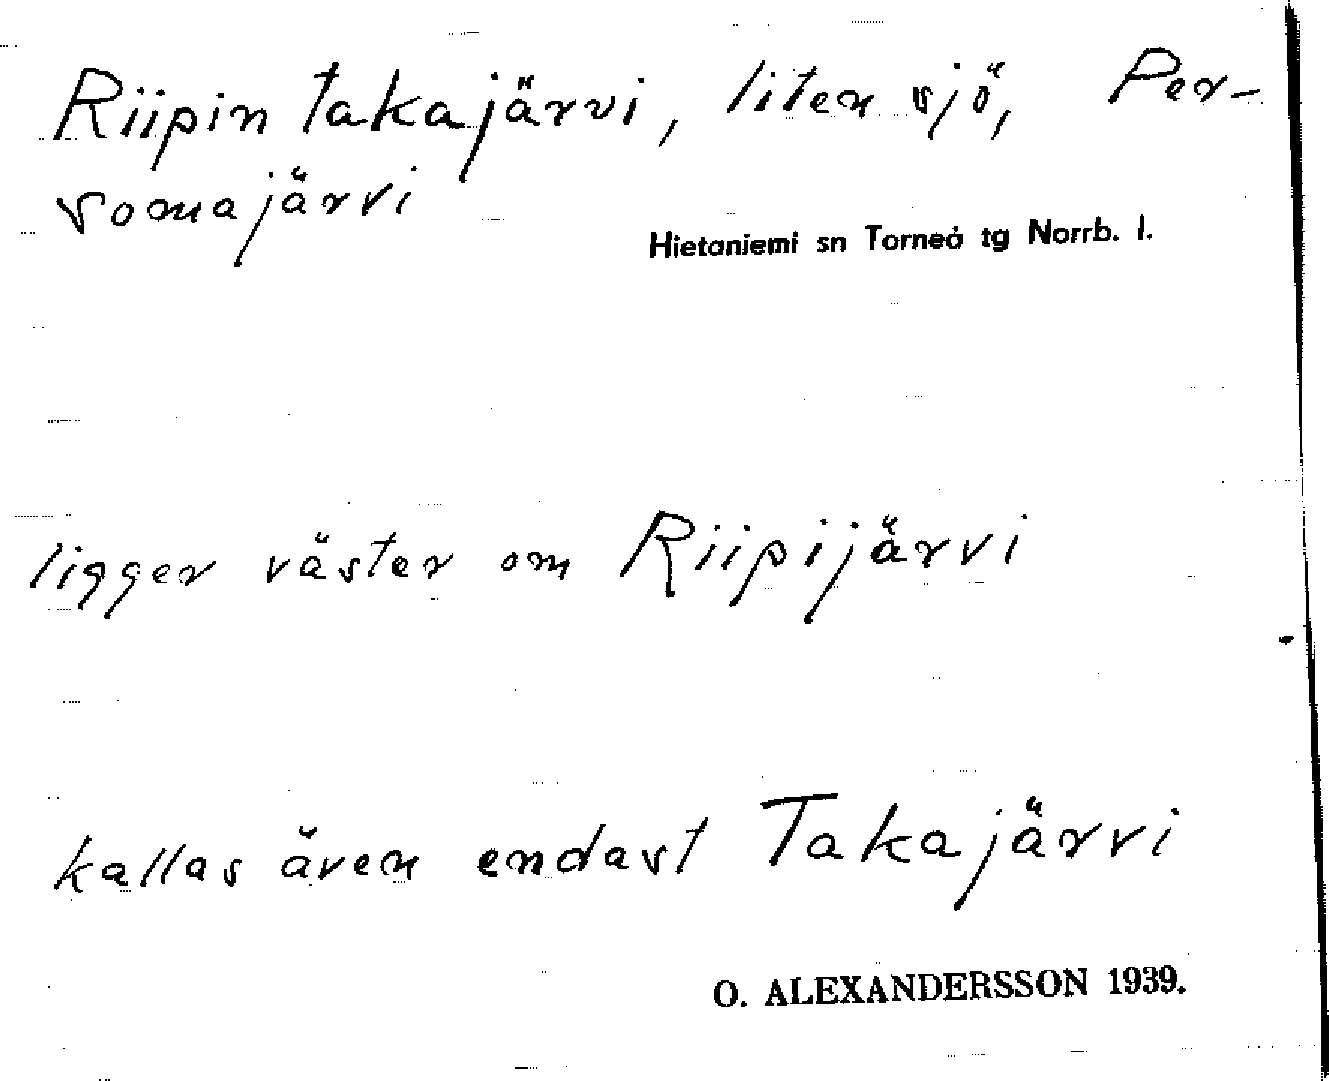 Riipin takajärvi, liten sjö, Per-
somajärvi
Hietaniemi sn Torneå tg Norrb. l.
ligger väster om Riipijärvi
kallas även endast Takajärvi
O. ALEXANDERSSON 1939.